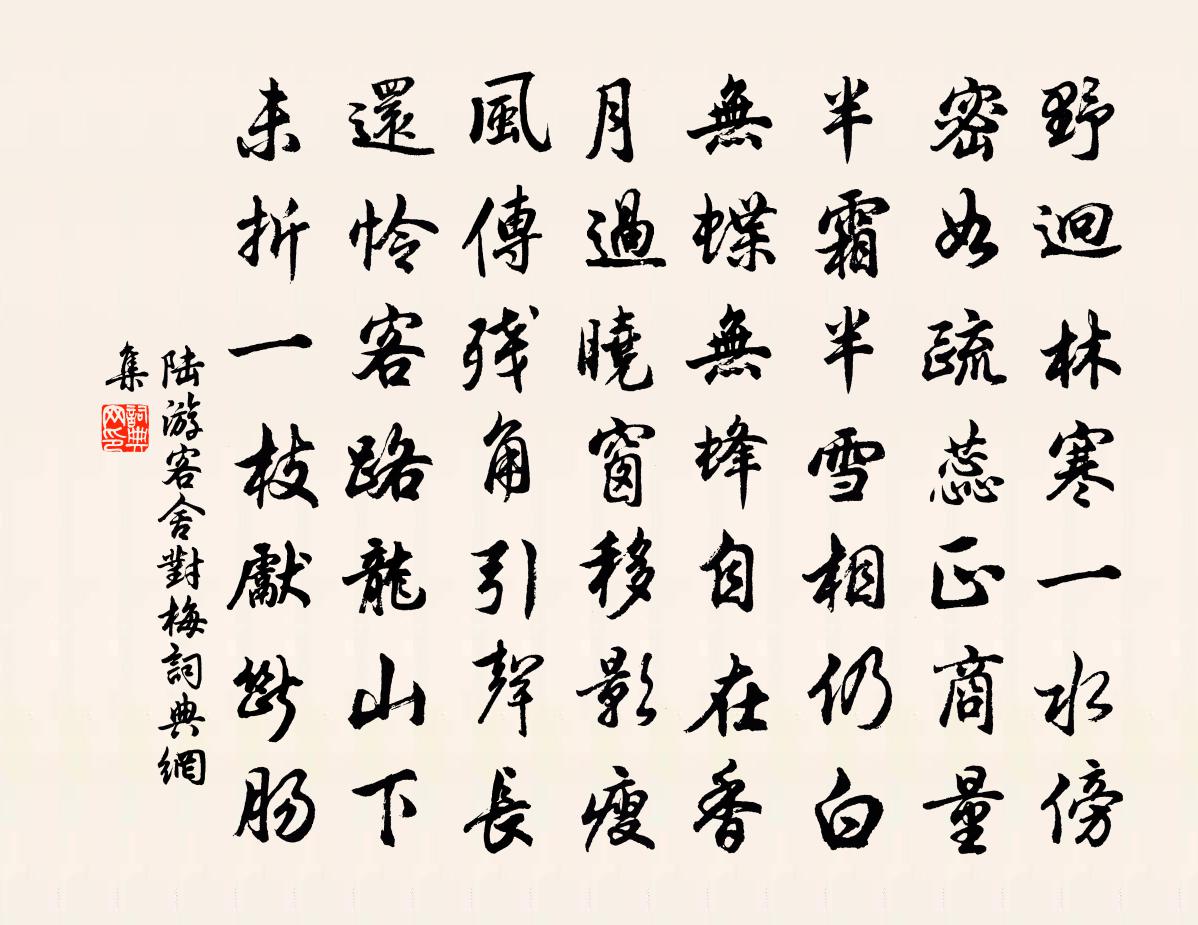 野迥林寒一水傍
密如疏蕊正商量
半霜半雪相仍白
無蝶無蜂自在香
月過曉窗移影瘦
風傳残角引聲長
還怜客路龍山下
未折一枝獻斷肠
陆游客舍對梅詞典網
集
詞典
网印